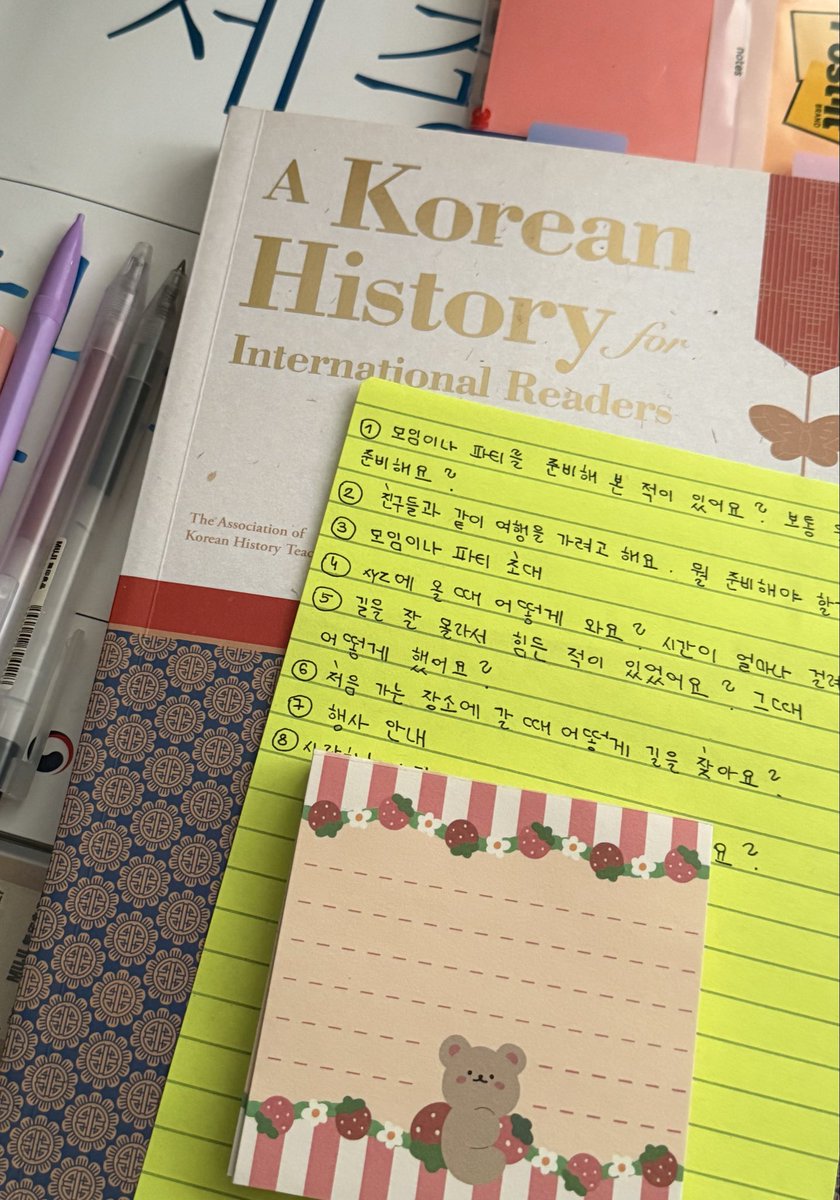 notes
Post-it
BRAND
A Korean
History for
International Readers
The Association of
Korean History
① 모임이나 파티를 준비해 본 적이 있어요? 보통
준비해요?
② 친구들과 같이 여행을 가려고 해요. 뭘 준비해야
③ 모임이나 파티 초대
④ XYZ에 올 때 어떻게 와요? 시간이 얼마나
⑤ 길을 잘 몰라서 힘든 적이 있었어요? 그때
어떻게 했어요?
⑥ 처음 가는 장소에 갈 때 어떻게 길을 찾아요?
⑦ 행사 안내
⑧
요?
MUJI 無印良品